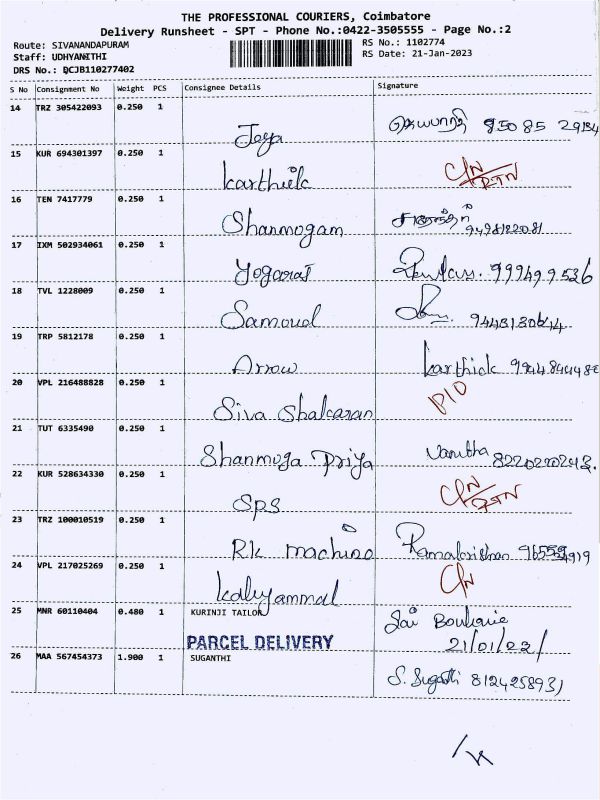 THE PROFESSIONAL COURIERS, Coimbatore
Delivery Runsheet - SPT - Phone No.:0422-3505555 - Page No.:2
Route: SIVANANDAPURAM RS No.: 1102774
Staff: UDHYANITHI RS Date: 21-Jan-2023
DRS No.: DCJB110277402
S No Consignment No Weight PCS Consignee Details Signature
14 TRZ 305422093 0.250 1
Jeya 85085
15 KUR 694301397 0.250 1
karthick C/N RTN
16 TEN 7417779 0.250 1
Shanmogam 9498122081
17 IXM 502934061 0.250 1
Yogaraj 999499536
18 TVL 1228009 0.250 1
Samoud
19 TRP 5812178 0.250 1
Arrow karthick
20 VPL 216488828 0.250 1
Siva Shalcaran P/O
21 TUT 6335490 0.250 1
Shanmuga Priya Vanitha 8220200243.
22 KUR 528634330 0.250 1
SPS C/N RTN
23 TRZ 100010519 0.250 1
Rk machino Ramakrishnan
24 VPL 217025269 0.250 1
kaliyammal C/N
25 MNR 60110404 0.480 1 KURINJI TAILOR
Sai
PARCEL DELIVERY 21/01/23/
26 MAA 567454373 1.900 1 SUGANTHI
S. Sugathi 8124258931